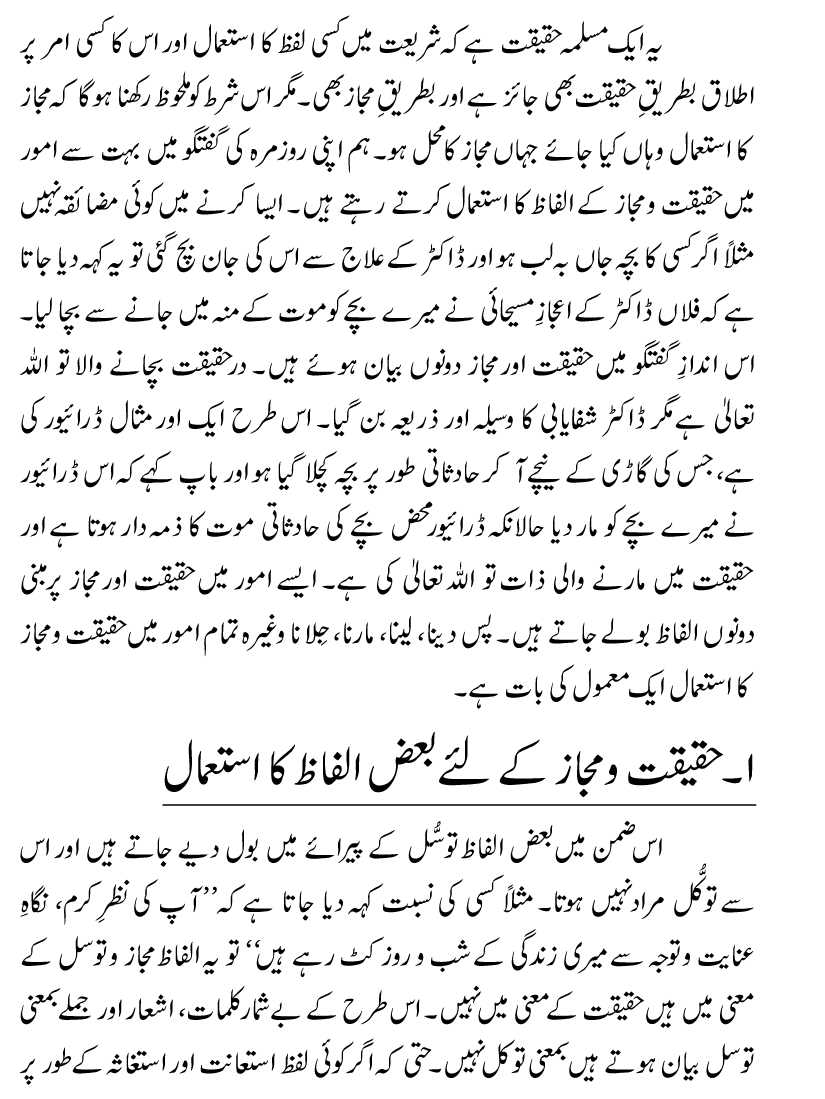 یہ ایک مسلمہ حقیقت ہے کہ شریعت میں کسی لفظ کا استعمال اور اس کا کسی امر پر
اطلاق بطریقِ حقیقت بھی جائز ہے اور بطریقِ مجاز بھی۔ مگر اس شرط کو ملحوظ رکھنا ہو گا کہ مجاز
کا استعمال وہاں کیا جائے جہاں مجاز کا محل ہو۔ ہم اپنی روزمرہ کی گفتگو میں بہت سے امور
میں حقیقت ومجاز کے الفاظ کا استعمال کرتے رہتے ہیں۔ ایسا کرنے میں کوئی مضائقہ نہیں
مثلاً اگر کسی کا بچہ جاں بہ لب ہو اور ڈاکٹر کے علاج سے اس کی جان بچ گئی تو یہ کہہ دیا جاتا
ہے کہ فلاں ڈاکٹر کے اعجازِ مسیحائی نے میرے بچے کو موت کے منہ میں جانے سے بچا لیا۔
اس اندازِ گفتگو میں حقیقت اور مجاز دونوں بیان ہوئے ہیں۔ درحقیقت بچانے والا تو اللہ
تعالیٰ ہے مگر ڈاکٹر شفایابی کا وسیلہ اور ذریعہ بن گیا۔ اس طرح ایک اور مثال ڈرائیور کی
ہے، جس کی گاڑی کے نیچے آ کر حادثاتی طور پر بچہ کچلا گیا ہو اور باپ کہے کہ اس ڈرائیور
نے میرے بچے کو مار دیا حالانکہ ڈرائیور محض بچے کی حادثاتی موت کا ذمہ دار ہوتا ہے اور
حقیقت میں مارنے والی ذات تو اللہ تعالیٰ کی ہے۔ ایسے امور میں حقیقت اور مجاز پر مبنی
دونوں الفاظ بولے جاتے ہیں۔ پس دینا، لینا، مارنا، جِلانا وغیرہ تمام امور میں حقیقت ومجاز
کا استعمال ایک معمول کی بات ہے۔
ا۔ حقیقت ومجاز کے لئے بعض الفاظ کا استعمال
اس ضمن میں بعض الفاظ توسُّل کے پیرائے میں بول دیے جاتے ہیں اور اس
سے توکُّل مراد نہیں ہوتا۔ مثلاً کسی کی نسبت کہہ دیا جاتا ہے کہ ’’آپ کی نظرِ کرم، نگاہِ
عنایت وتوجہ سے میری زندگی کے شب و روز کٹ رہے ہیں‘‘ تو یہ الفاظ مجاز وتوسل کے
معنی میں ہیں حقیقت کے معنی میں نہیں۔ اس طرح کے بے شمار کلمات، اشعار اور جملے بمعنی
توسل بیان ہوتے ہیں بمعنی توکل نہیں۔ حتی کہ اگر کوئی لفظ استعانت اور استغاثہ کے طور پر